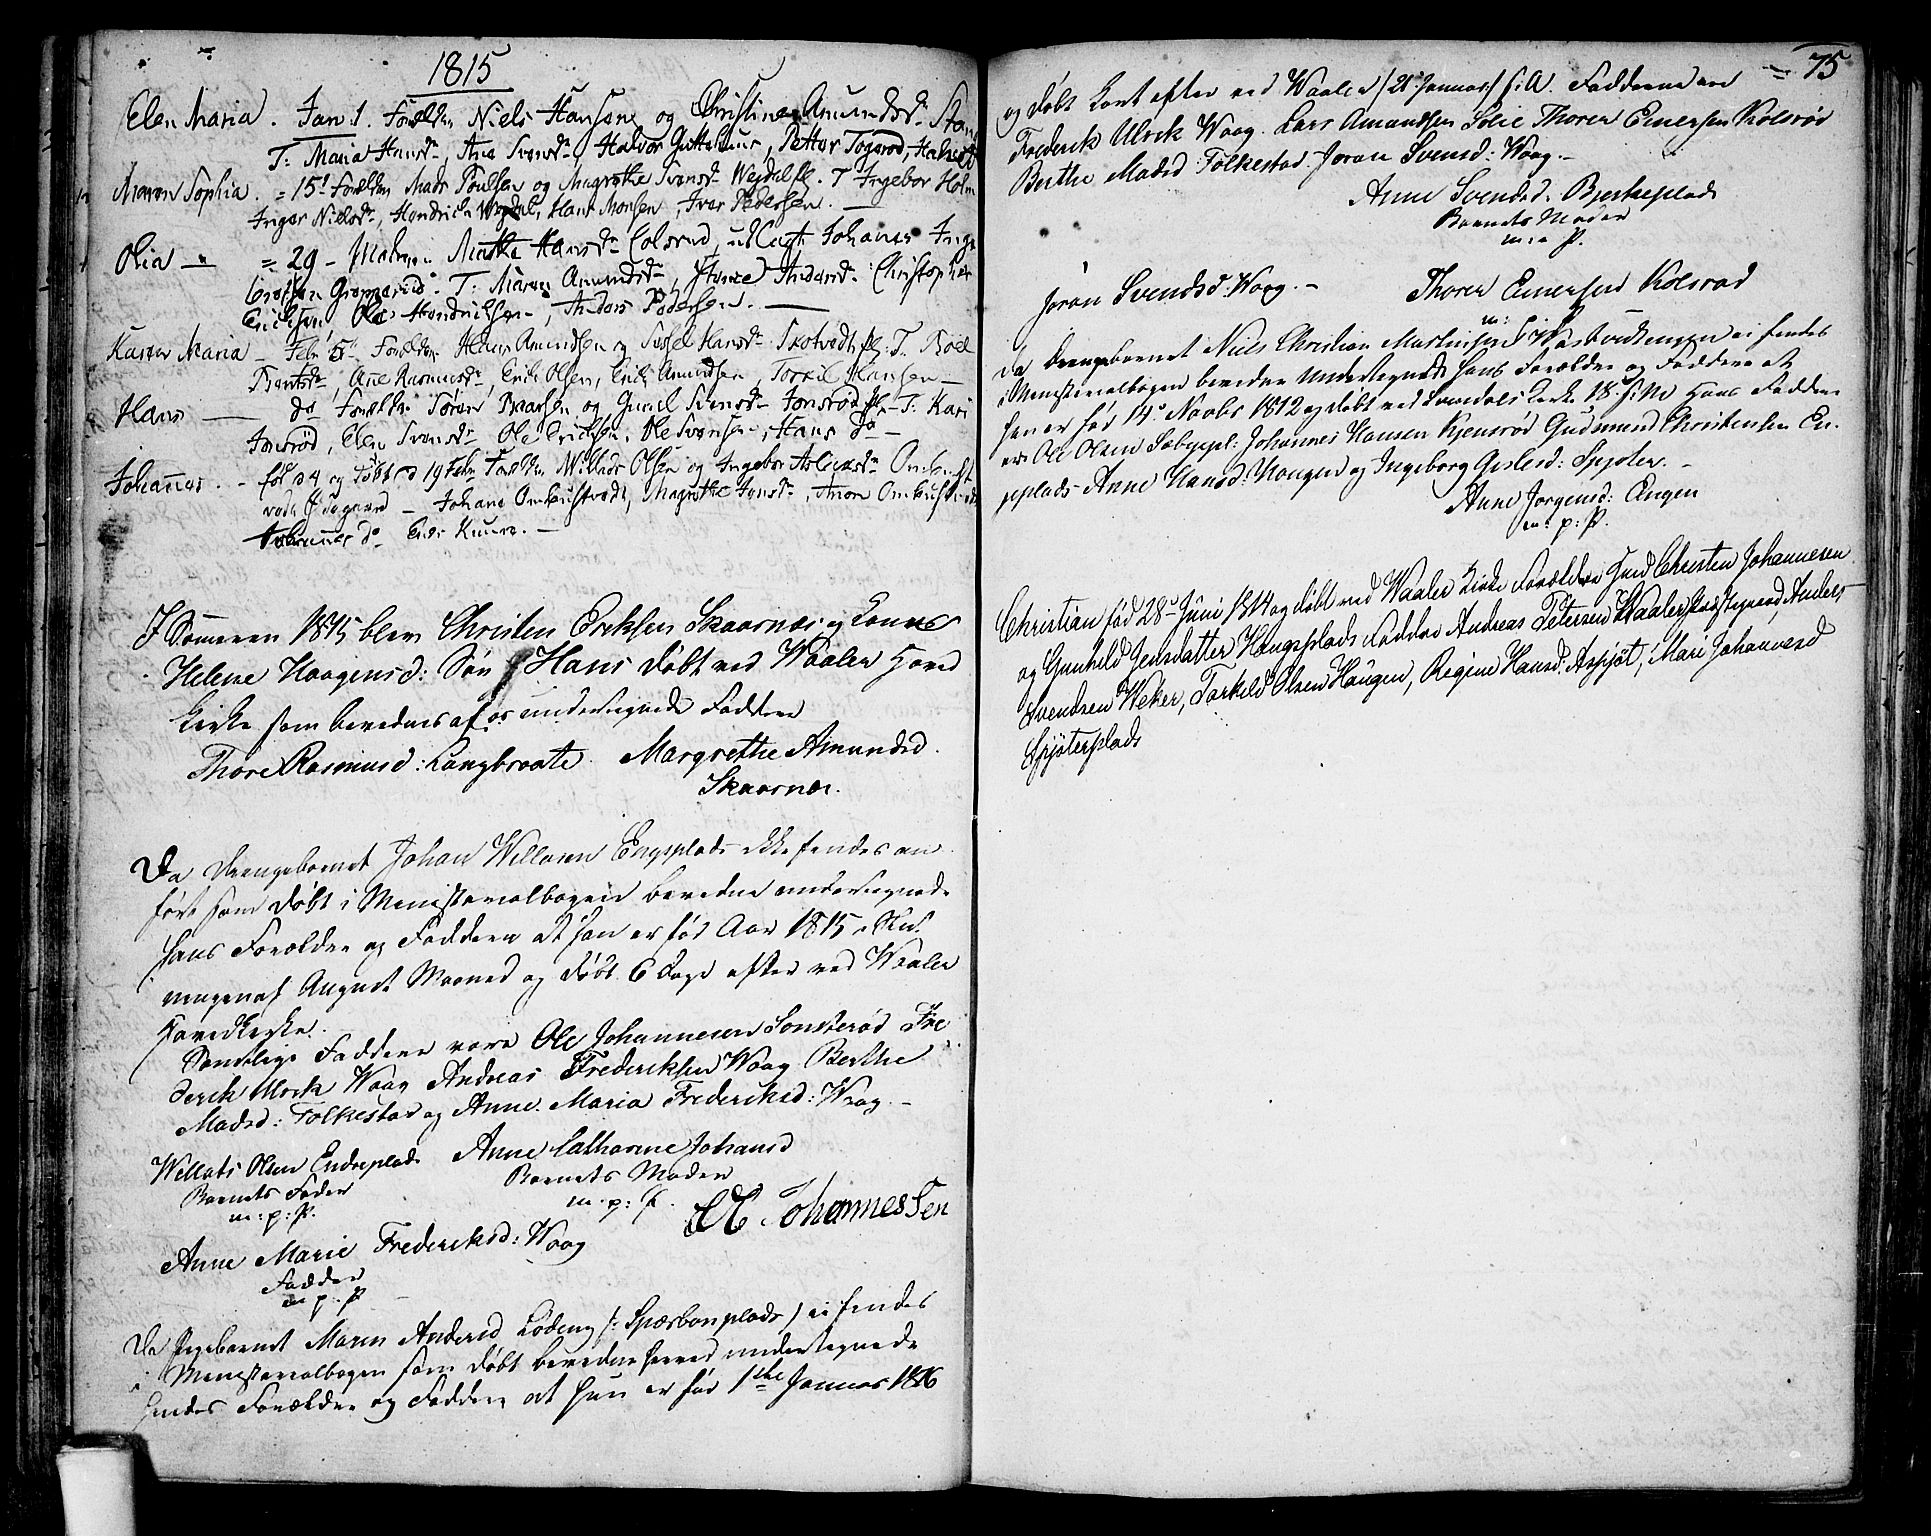 1815
Elen Maria. Jan 1. Forældre Niels Hansen og Christine Amundsdr
T: Maria Hansdr, Ane Svensdr, Halvor Guttelhuus, Petter Togerød,
Maren Sophia. = 15d Forældre Mads Poulsen og Magrethe Svensdr Wejdal pl. T Ingebor Holm
Inger Nielsdr, Hendrich Wejdal, Hans Monsen, Iver Pedersen. —
Olia — " = 29 — Moderen Marthe Hansdr Colsrud, udlagt Johannes Inge
T: Maren Amundsdr, Andersdr Christopher
Erichsen, Ole Hendrichsen, Anders Pedersen. —
Karen Maria — Febr 5t Forældre Hans Amundsen og Sissel Hansdr Skotvedt pl. T. Boel
Berntsdr, Ane Rasmusdr, Erich Olsen, Erich Amundsen, Torkil Hansen —
Hans — do Forældre Søren Baarsen og Gunild Svensdr Jonsrød pl — T: Kari
Jonsrød, Elen Svensdr Ole Erichsen, Ole Svensen, Hans do —
Johannes. — fød d 4 og døbt d 19 Febr Forældre Willads Olsen og Ingebor Aslaksdr
— Johans Ombustvedt, Magrethe Jonsdr, Anon Ombustvedt
Johannes do Erich Knurr. —
I Sommeren 1815 blev Christen Eriksen Skaarnæs og Konnes
Helene Haagensd: Søn Hans døbt ved Waaler Hoved
Kirke som bevidnes af os undertegnede Faddere
Thore Rasmusd: Langbraate. Margrethe Amundsd.
Skaarnæs.
Da Drengebarnet Johan Willasen Engsplads ikke findes an
ført som døbt i Ministerialbogen bevidne undertegnede
hans Forældre og Faddere at han er fød Aar 1815 i Slut
ningen af August Maaned og døbt 6 Dage efter ved Waaler
Hovedkirke.
Samtlige Faddere vare Ole Johannesen Sonsterød Fre
derik Ulrik Waag Andreas Frederiksen Waag Berthe
Madsd: Folkestad og Anne Maria Frederiksd: Waag. —
Willats Olsen Endreplads Anne Catharine Johansd
Barnets Fader Barnets Moder
m: p: P. m. p: P.
OE Johannessen
Anne Marie Frederiksd: Waag
Fadder
m p. P
Da Pigebarnet Maren Andersd Lødeng /: Spærbonplads / ei findes
i Ministerialbogen som døbt bevidne herved undertegnede
hendes Forældre og Faddere at hun er fød 1ste Januar 1816
75
og døbt kort efter ved Waaler / 21 Januar / s: A. Fadderne ere
Frederik Ulrik Waag. Lars Amundsen Solie Thorer Einersen Kolsrød
Berthe Madsd: Folkestad Joran Svensd: Waag. —
Anne Svendsd. Bjerkeplads
Barnets Moder
m: p.
Joran Svendsd. Waag. — Thorer Einersen Kolsrød
Da Drengebarnet Niels Christian Martinsen ei findes
i Ministerialbogen bevidne undertegnede hans Forældre og Faddere at
han er fød 14d Novbr 1812 og døbt ved Svindals Kirke 18 s: M Hans Faddere
ere Ole Olsen Sæbyepl: Johannes Hansen Kjensrød Gudmund Christensen En-
pplads Anne Hansd: Haugen og Ingeborg Gislesd: Spjoter. —
Anne Jorgensd: Engen
m: p: P.
Christian fød 28d Juni 1814 og døbt ved Waaler Kirke Forældre Gmd Christen Johannesen
og Gunhild Jensdatter Haugsplads Faddre Andreas Petersen Waaler Præstegaard, Anders
Svendsen Weker, Torkild Olsen Haugen, Regine Hansd. Aspjøt, Mari Johannesd
Spjøterplads